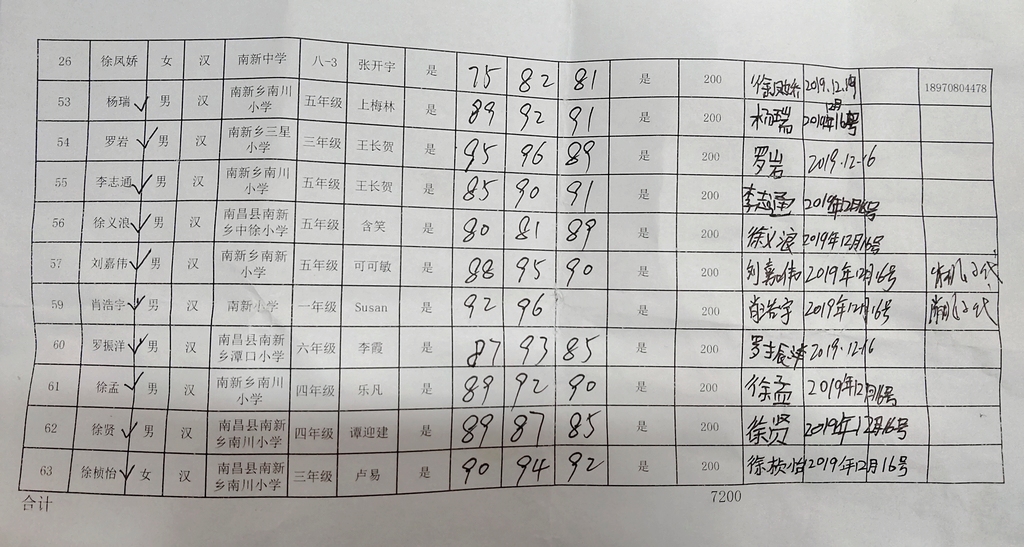 26 徐凤娇 女 汉 南新中学 八-3 张开宇 是 75 82 81 是 200 徐凤娇 2019.12.19 18970804478
53 杨瑞 ✓ 男 汉 南新乡南川小学 五年级 上梅林 是 89 92 91 是 200 杨瑞 2019年12月16号
54 罗岩 ✓ 男 汉 南新乡三星小学 三年级 王长贺 是 95 96 89 是 200 罗岩 2019.12-16
55 李志通 ✓ 男 汉 南新乡南川小学 五年级 王长贺 是 85 90 91 是 200 李志通 2019年12月16号
56 徐义浪 ✓ 男 汉 南昌县南新乡中徐小学 五年级 含笑 是 80 81 89 是 200 徐义浪 2019年12月16号
57 刘嘉伟 ✓ 男 汉 南新乡南新小学 五年级 可可敏 是 88 95 90 是 200 刘嘉伟 2019年12月16号 代
59 肖浩宇 ✓ 男 汉 南新小学 一年级 Susan 是 92 96 是 200 肖浩宇 2019年12月16号 代
60 罗振洋 ✓ 男 汉 南昌县南新乡潭口小学 六年级 李霞 是 87 93 85 是 200 罗振洋 2019.12-16
61 徐孟 ✓ 男 汉 南新乡南川小学 四年级 乐凡 是 89 92 90 是 200 徐孟 2019年12月16号
62 徐贤 ✓ 男 汉 南昌县南新乡南川小学 四年级 谭迎建 是 89 87 85 是 200 徐贤 2019年12月16号
63 徐桢怡 ✓ 女 汉 南昌县南新乡南川小学 三年级 卢易 是 90 94 92 是 200 徐桢怡 2019年12月16号
合计 7200